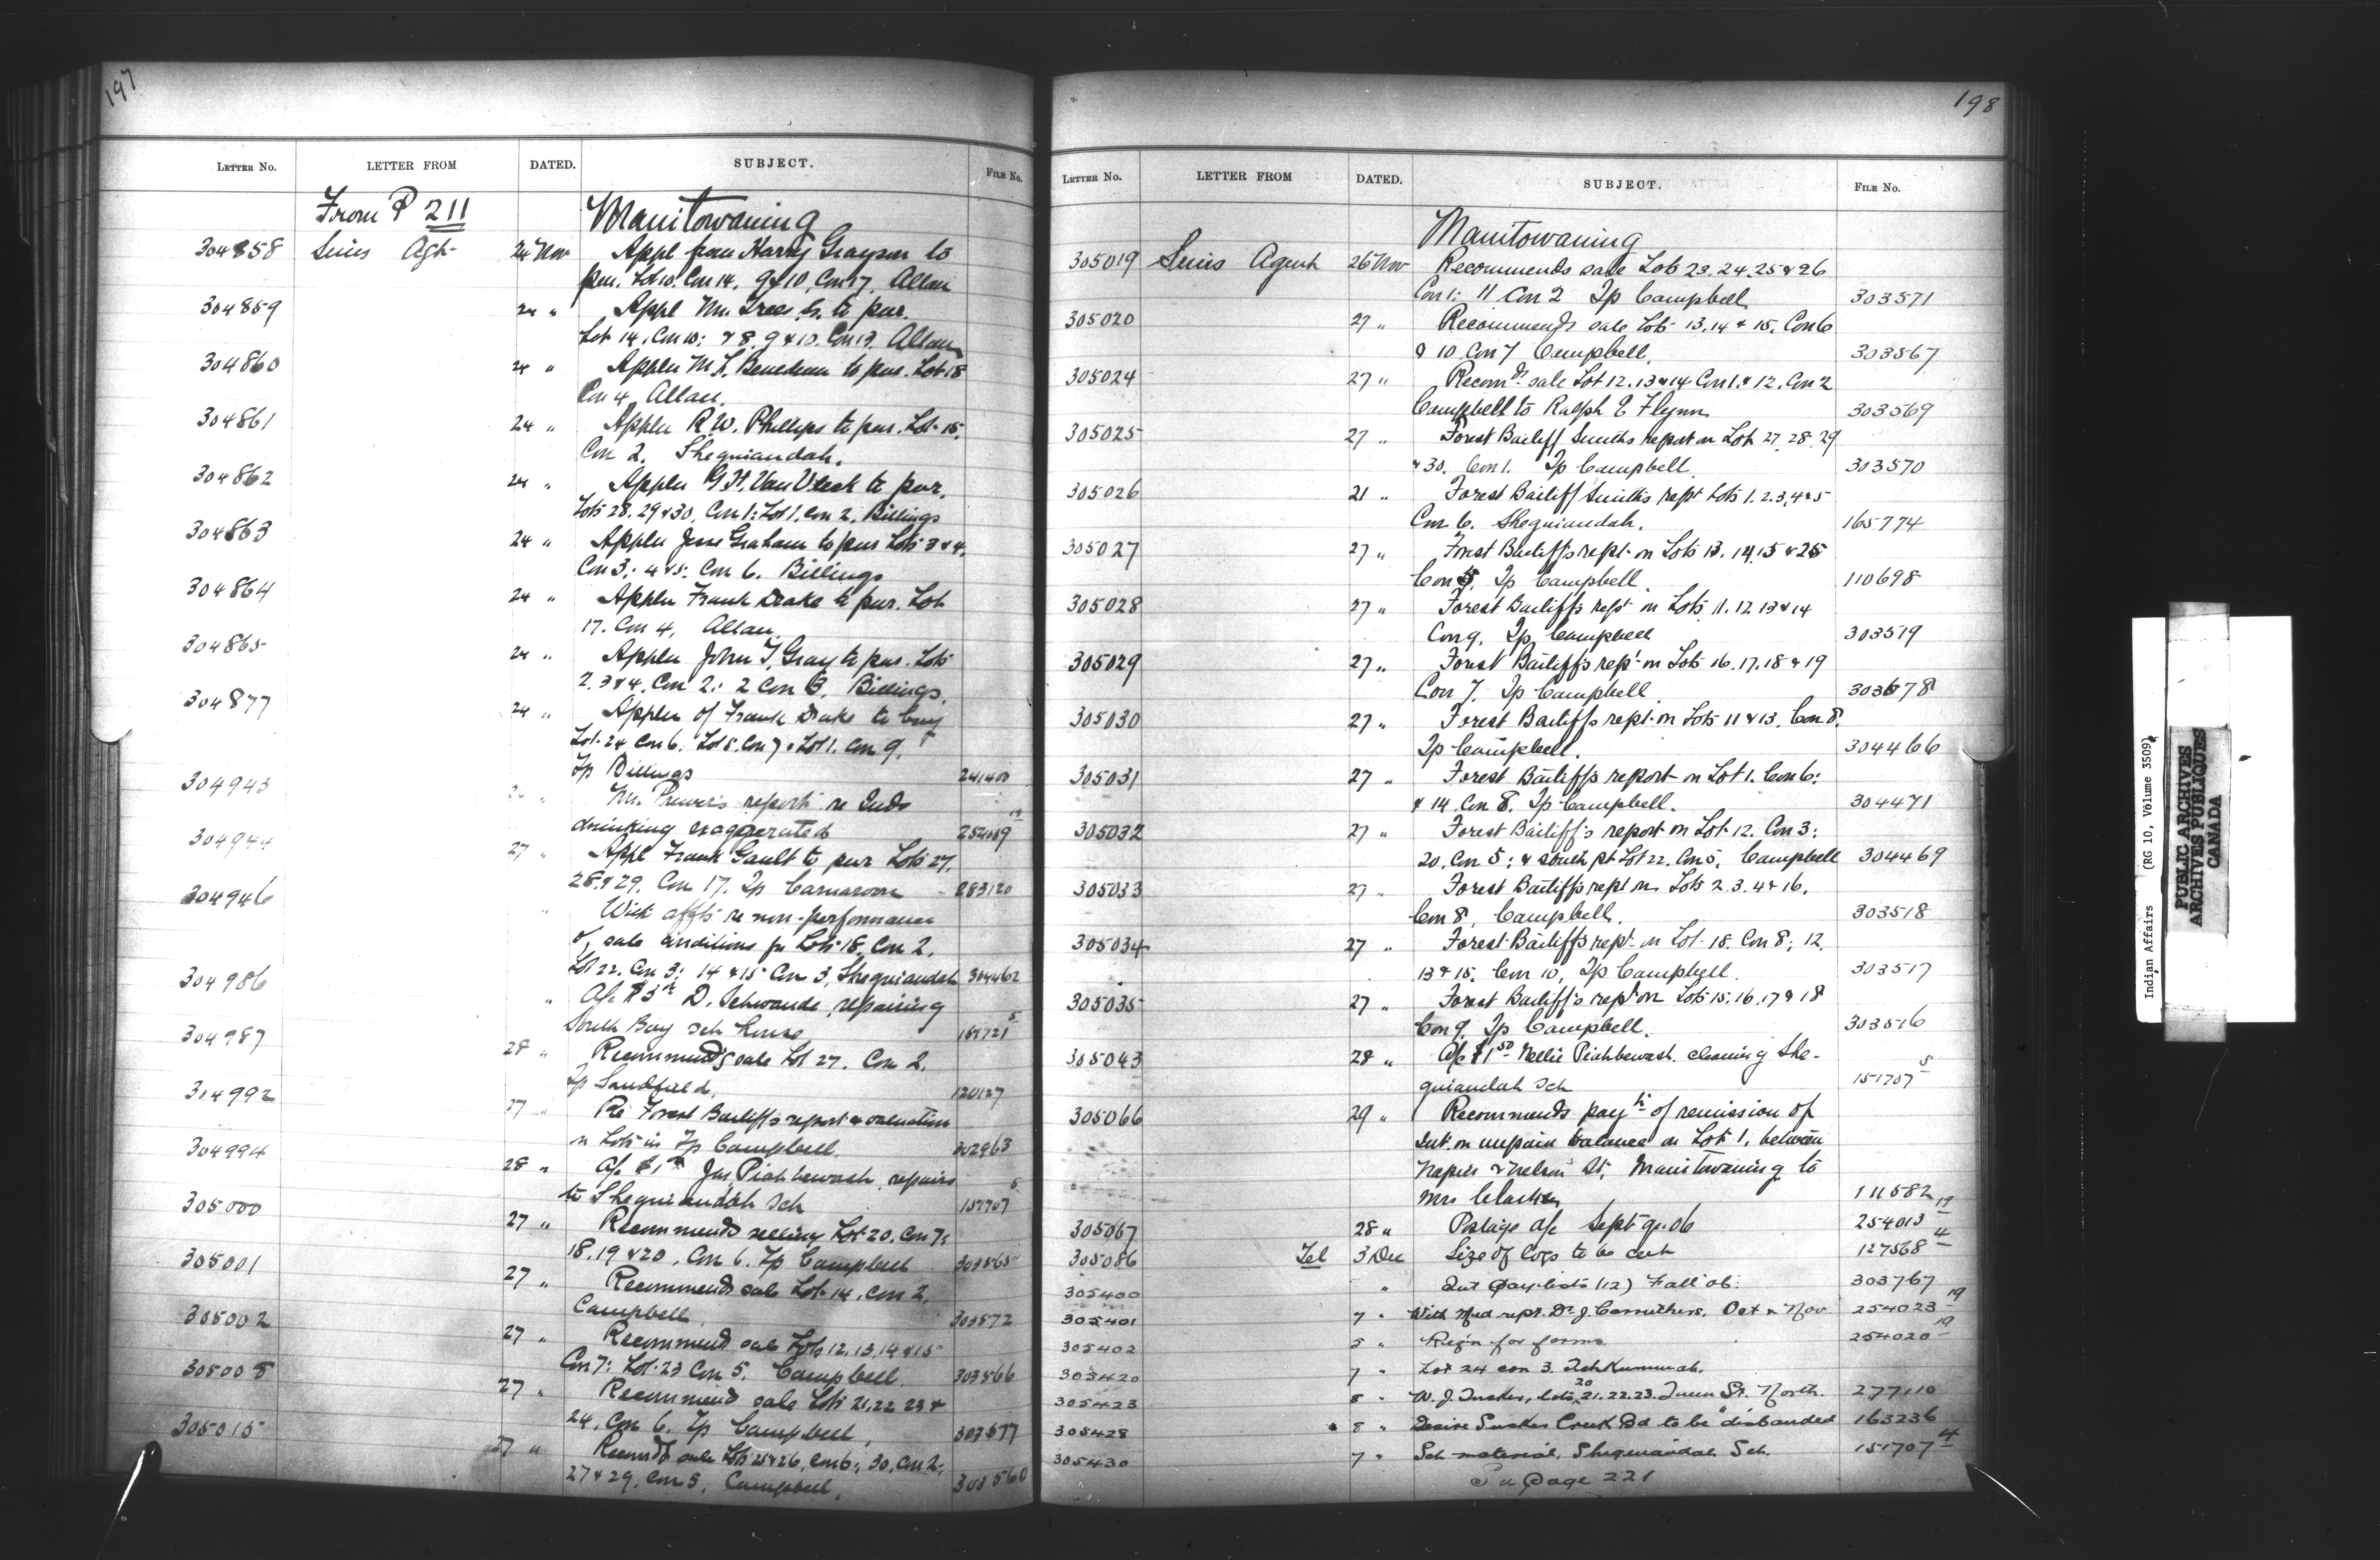 197
LETTER No. LETTER FROM DATED. SUBJECT. FILE No.
From P 211 Manitowaning
304858 Sims Agt 24 Nov Appl from Harry Grayson to
pur. Lot 10. Con 14, 9 & 10, Con 17, Allan
304859 24 " Appl Mr. to pur.
Lot 14, Con 10: & 8, 9 & 10. Con 13, Allan
304860 24 " Appln to pur. Lot 18
Con 4, Allan.
304861 24 " Appln R. W. Phillips to pur. Lot 15,
Con 2, Sheguiandah.
304862 24 " Appln G. H. Van Vleck to pur.
Lots 28. 29 & 30, Con 1: Lot 1, Con 2, Billings
304863 24 " Appln Jesse Graham to pur Lots 3 & 4,
Con 3: 4 & 5: Con 6. Billings
304864 24 " Appln Frank Drake to pur. Lot
17. Con 4, Allan
304865 24 " Appln John T. Gray to pur. Lots
2. 3 & 4, Con 2: 2 Con 3, Billings.
304877 24 " Appln of Frank Drake to buy
Lot 24 Con 6, Lot 5, Con 7 & Lot 1. Con 9,
Tp Billings 241400
304943 " Mr. report re Inds
drinking exaggerated 254009 19
304944 27 " Appl Frank Gault to pur Lots 27,
28, & 29. Con 17. Tp Carnarvon - 283120
304946 " With affts re non-performance
of sale conditions for Lots 18, Con 2,
Lot 22. Con 3: 14 & 15 Con 3, Sheguiandah 304462
304986 " A/c D. Schwande, repairing
South Bay Sch house 157721 5
304987 28 " Recommends sale Lot 27. Con 2.
Tp Sandfield, 120127
304992 27 " Re Forest Bailiff's report & valuation
n Lots in Tp Campbell 302963
304994 28 " A/c Jas. Piahbewash, repairs
to Sheguiandah Sch 151707 5
305000 27 " Recommends selling Lot 20. Con 7:
18, 19 & 20, Con 6. Tp Campbell 303565
305001 27 " Recommends sale Lot 14, Con 2,
Campbell 303572
305002 27 " Recommend sale Lots 12, 13, 14 & 15
Con 7: Lot 23 Con 5. Campbell 303566
305008 27 " Recommend sale Lots 21, 22 23 &
24, Con 6. Tp Campbell, 303577
305015 27 " Recomds sale Lots 25 & 26, Con 6: 30, Con 2:
27 & 29, Con 5, Campbell, 303560
198
LETTER No. LETTER FROM DATED. SUBJECT. FILE No.
Manitowaning
305019 Sims Agent 26 Nov Recommends sale Lots 23, 24, 25 & 26
Con 1: 11 Con 2 Tp Campbell 303571
305020 27 " Recommends sale Lots 13, 14 & 15. Con 6
& 10. Con 7 Campbell. 303567
305024 27 " Recomds sale Lot 12. 13 & 14 Con 1. & 12. Con 2
Campbell to Ralph E Flynn 303569
305025 27 " Forest Bailiff Smiths report on Lots 27. 28. 29
& 30. Con 1. Tp Campbell 303570
305026 21 " Forest Bailiff Smith's rept Lots 1. 2. 3, 4 & 5
Con 6. Sheguiandah. 165774
305027 27 " Forest Bailiff's rept. on Lots 13. 14, 15 & 25
Con 5, Tp Campbell. 110698
305028 27 " Forest Bailiff's rept on Lots 11. 12. 13 & 14
Con 9, Tp Campbell 303519
305029 27 " Forest Bailiff's rept on Lots 16. 17. 18 & 19
Con 7. Tp Campbell. 303678
305030 27 " Forest Bailiff's rept. on Lots 11 & 13, Con 8.
Tp Campbell. 304466
305031 27 " Forest Bailiff's report on Lot 1. Con 6:
& 14. Con 8. Tp Campbell. 304471
305032 27 " Forest Bailiff's report on Lot 12. Con 3:
20. Con 5: & south pt Lot 22. Con 5, Campbell 304469
305033 27 " Forest Bailiff's rept on Lots 2. 3. 4 & 16,
Con 8, Campbell. 303518
305034 27 " Forest Bailiff's rept on Lot 18. Con 8; 12,
13 & 15, Con 10, Tp Campbell. 303517
305035 27 " Forest Bailiff's rept on Lots 15, 16, 17 & 18
Con 9, Tp Campbell. 303516
305043 28 " A/c $1 50 Nellie Piahbewash. cleaning She-
guiandah Sch 151707 5
305066 29 " Recommends payt of remission of
Int. on unpaid balance on Lot 1, between
Napier & Nelson St. Manitowaning to
Mrs Clarke 111582
305067 28 " Postage a/c Sept qr. 06 254013 19
305086 Tel 3 Dec Size of logs to be cut 127568 4
305400 " Int paylists (12) Fall 06. 303767
305401 7 " With Med rept. Dr. J. Carruthers, Oct & Nov 254023 19
305402 5 " Reqn for forms 254020 19
305420 7 " Lot 24 con 3. Tehkummah.
305423 8 " W. J. Tucker, lots 20 21. 22. 23. Queen St. North. 277110
305428 8 " Desire Sucker Creek Bd to be "disbanded 163236
305430 7 " Sch material, Sheguiandah Sch. 151707 4
To page 221
Indian Affairs (RG 10, Volume 3509)
PUBLIC ARCHIVES
ARCHIVES PUBLIQUES
CANADA